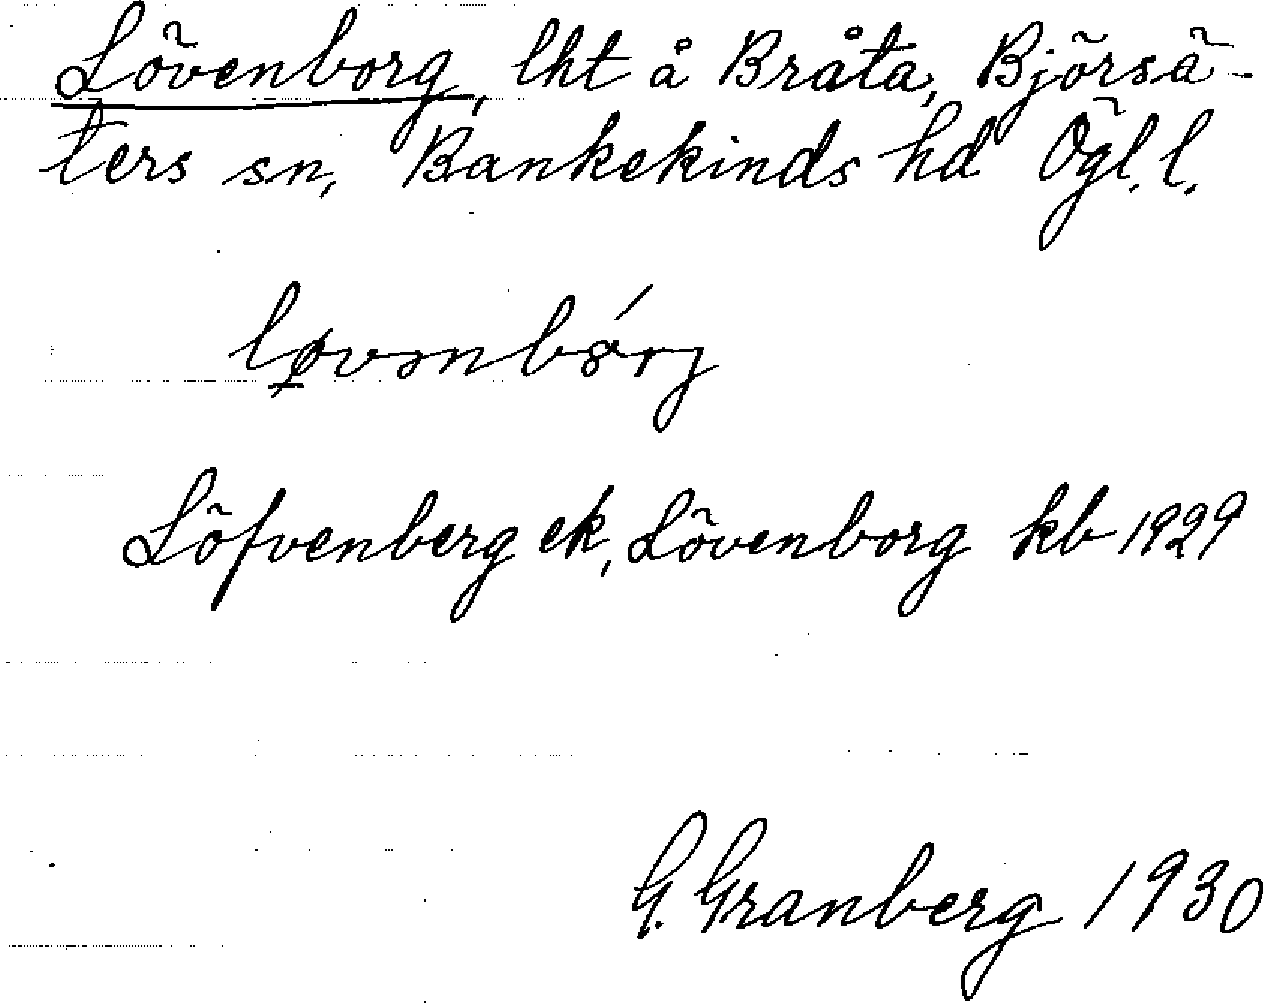 Lövenborg, lht å Bråta, Björsä-
ters sn, Bankekinds hd Ögl. l.
lø̱vənbǿrj
Löfvenberg ek, Lövenborg kb 1929
G. Granberg 1930